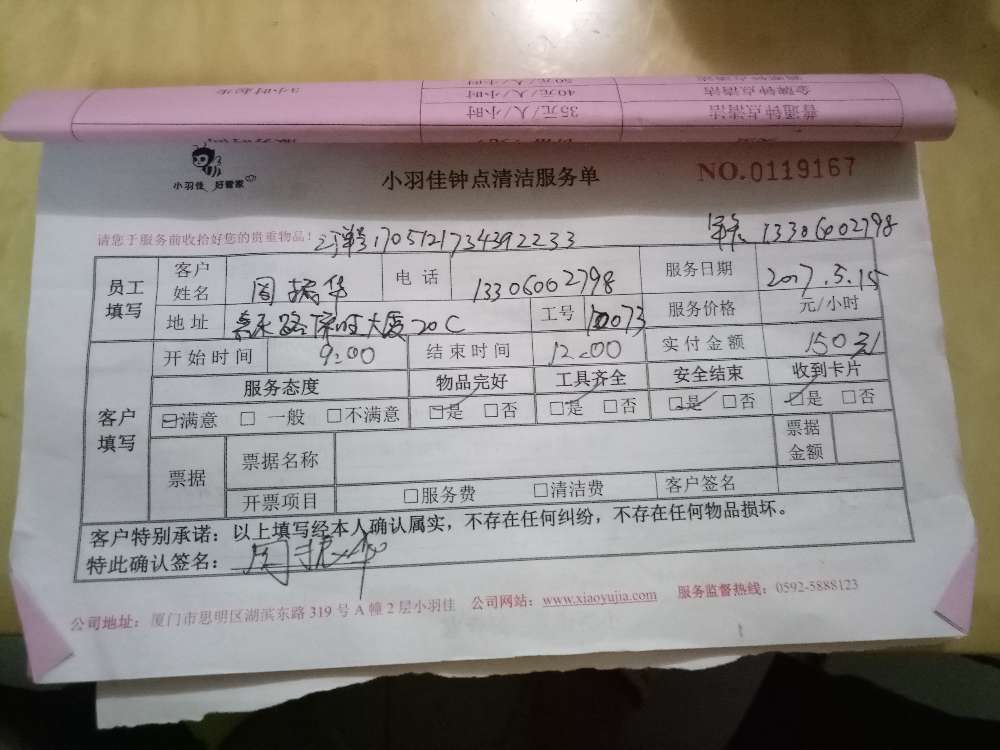 3小时起步 50元/人/小时
40元/人/小时 金牌钟点清洁
35元/人/小时 普通钟点清洁
小羽佳 好管家
小羽佳钟点清洁服务单
NO.0119167
请您于服务前收拾好您的贵重物品!
订单号:170512173439223 3 13306002798
员工填写 客户姓名 周振华 电话 13306002798 服务日期 2017.5.15
地址 大厦20C 工号 10073 服务价格 元/小时
客户填写 开始时间 9:00 结束时间 12:00 实付金额 150元
服务态度 物品完好 工具齐全 安全结束 收到卡片
☑满意 □一般 □不满意 ☑是 □否 ☑是 □否 ☑是 □否 ☑是 □否
票据 票据名称 票据金额
开票项目 □服务费 □清洁费 客户签名
客户特别承诺:以上填写经本人确认属实,不存在任何纠纷,不存在任何物品损坏。
特此确认签名: 周振华
公司地址:厦门市思明区湖滨东路319号A幢2层小羽佳 公司网站:www.xiaoyujia.com 服务监督热线:0592-5888123